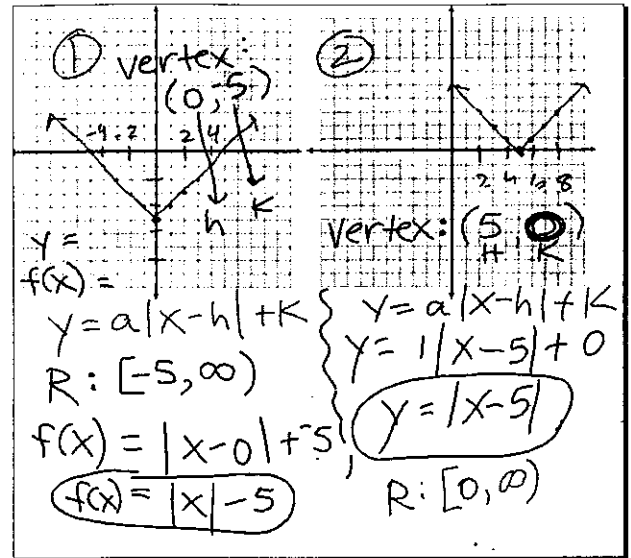 ① vertex:
(0, -5)
h K
-4 -2 2 4
y =
f(x) =
y = a|x-h| + K
R: [-5, ∞)
f(x) = |x-0| + -5
f(x) = |x| - 5
②
2 4 6 8
vertex: (5, 0)
H K
y = a|x-h| + K
y = 1|x-5| + 0
y = |x-5|
R: [0, ∞)